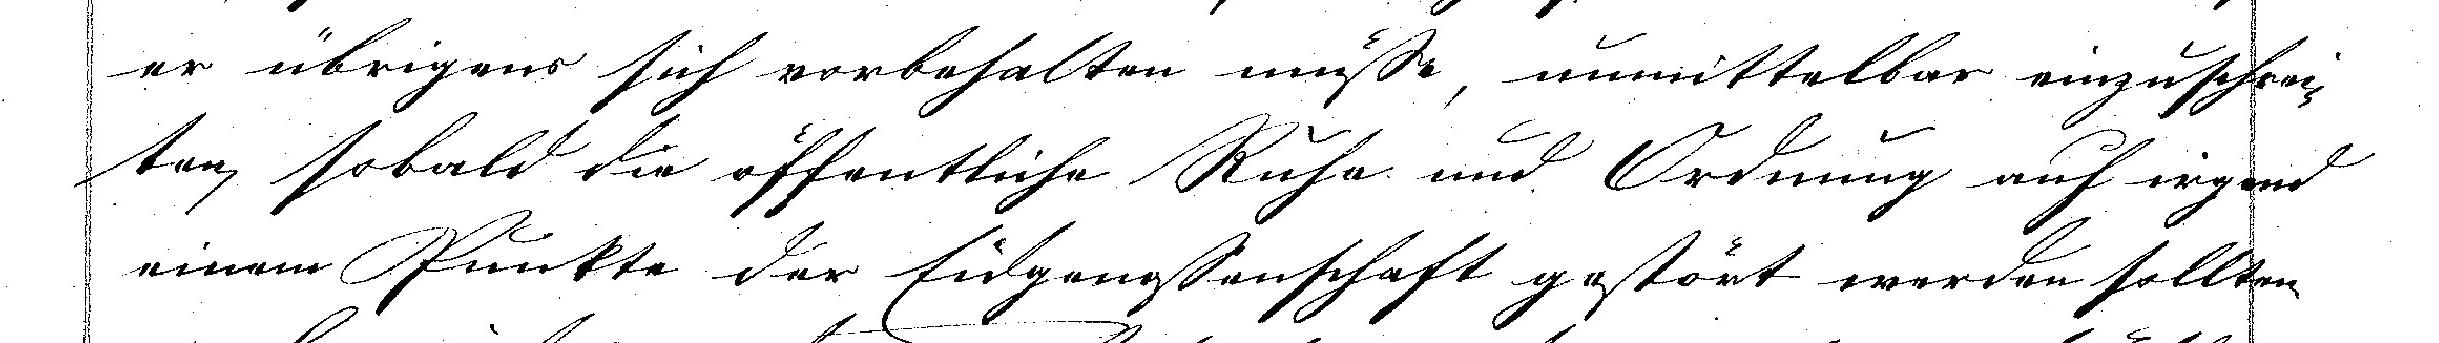 er übrigens sich vorbehalten müsse, unmittelbar einzuschrei-
ten, sobald die öffentliche Ruhe und Ordnung auf irgend
einem Punkte der Eidgenossenschaft gestört werden sollten